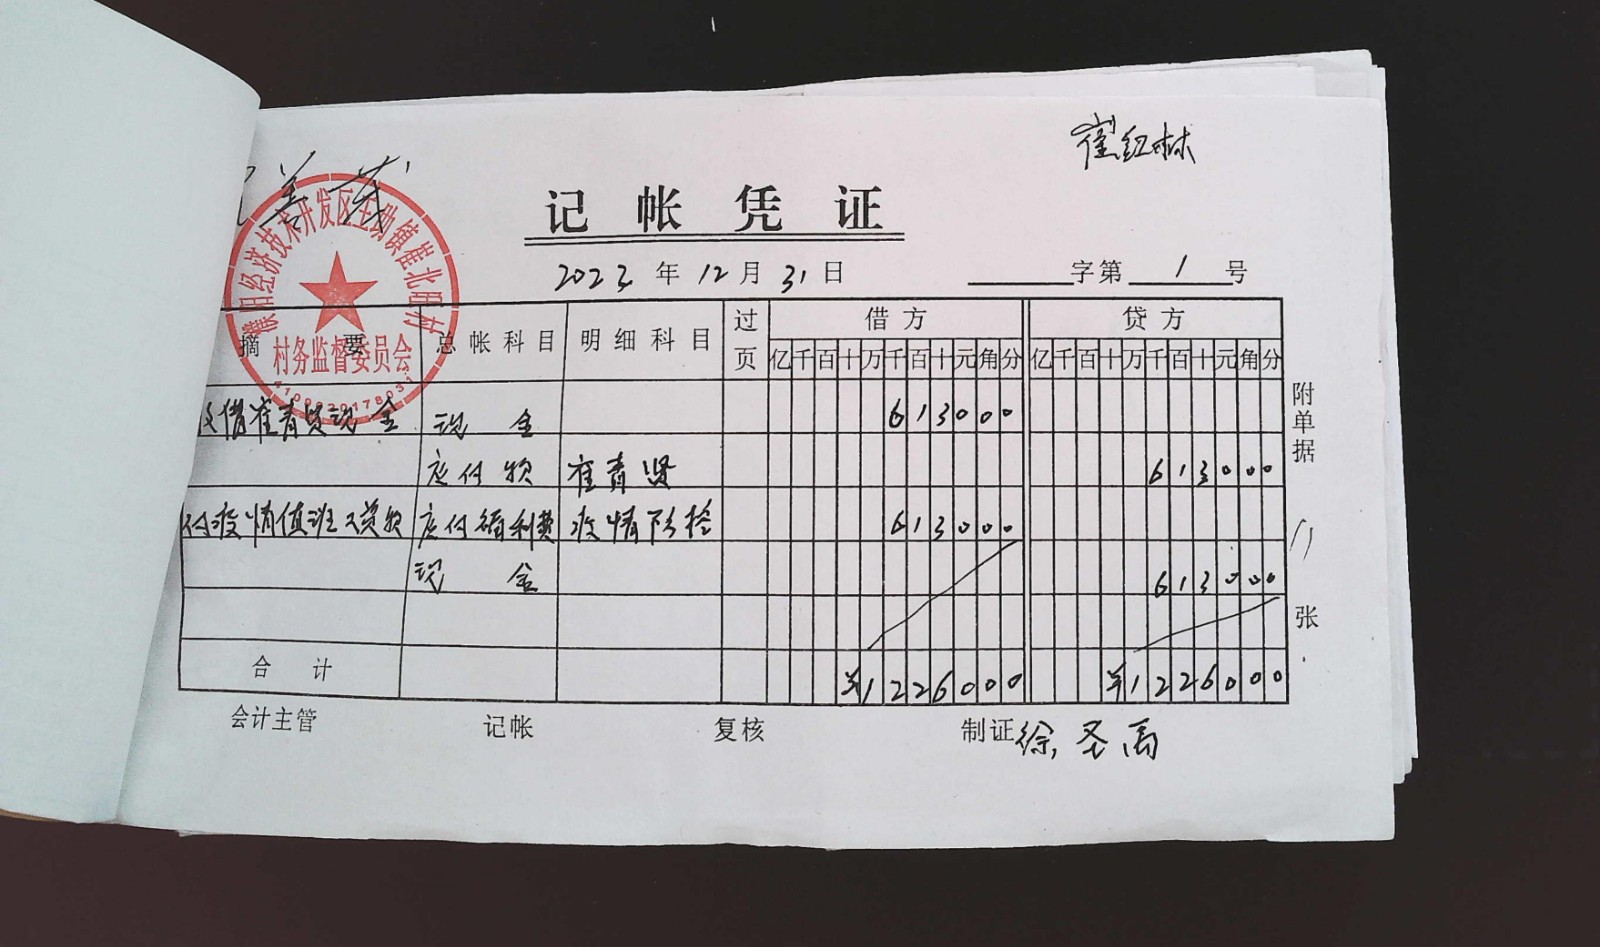 崔红林
记帐凭证
2023年12月31日 字第1号
濮阳经济技术开发区王助镇崔北旺村
村务监督委员会
摘要 总帐科目 明细科目 过页 借方 贷方
亿千百十万千百十元角分 亿千百十万千百十元角分
借崔青贤现金 现金 613000
应付款 崔青贤 613000
付疫情值班 款 应付福利费 疫情防控 613000
现金 613000
合计 ¥1226000 ¥1226000
附单据 11 张
会计主管 记帐 复核 制证 徐圣高